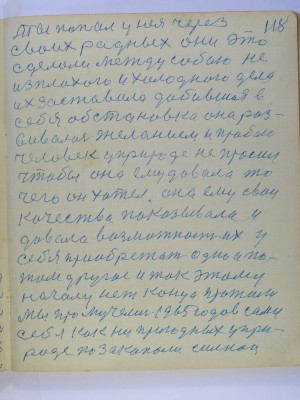 118
Ты попал у нея через
своих радных они это
сделали между собою не
изплохого и холодного дела
их заставила добившия в
себя обстановка она раз-
вивалая желанием и правою
человек у природе не просил
чтобы она ему давала то
чего он хотел. она ему свои
качества показывала и
давала возможность их у
себя приобретат одно а по-
том другое и так этому
началу нет конца прожили
мы промучели 1965 годов сами
себя как ни пригодных у при-
роде по законам силной